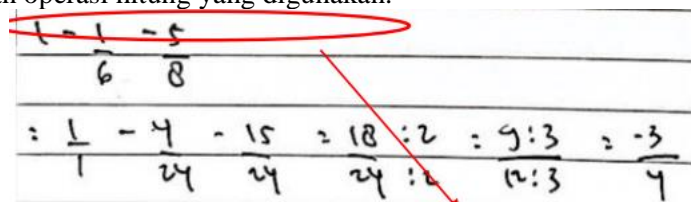 n operasi hitung yang digunakan.
1 - 1/6 - 5/8
= 1/1 - 4/24 - 15/24 = 18:2/24:2 = 9:3/12:3 = -3/4